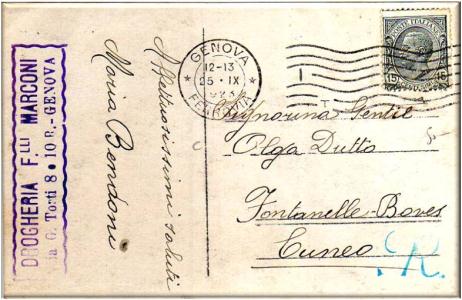 DROGHERIA F.LLI MARCONI
Via G. Torti 8 • 10 R. - GENOVA
Affettuosissimi saluti
Maria Bendoni
GENOVA
12-13
25 · IX
923
FERROVIA
POSTE ITALIANE
15 15
Signorina Gentil
Olga Dutto
Fontanelle-Boves
Cuneo
R.